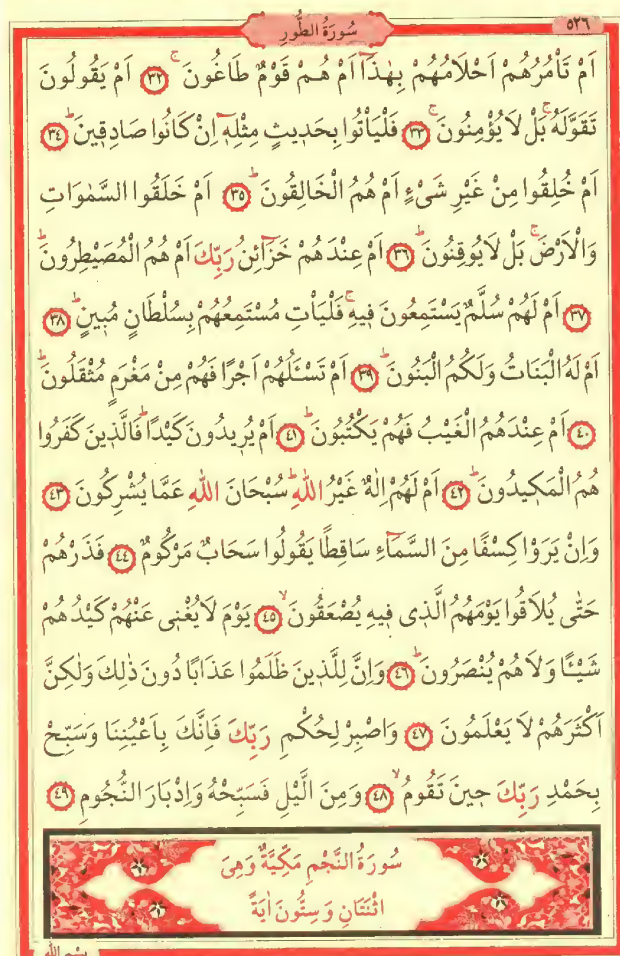 ٥٢٦
سُورَةُ الطُّورِ
اَمْ تَأْمُرُهُمْ اَحْلَامُهُمْ بِهٰذَٓا اَمْ هُمْ قَوْمٌ طَاغُونَۚ ﴿٣٢﴾ اَمْ يَقُولُونَ
تَقَوَّلَهُۚ بَلْ لَا يُؤْمِنُونَۚ ﴿٣٣﴾ فَلْيَأْتُوا بِحَد۪يثٍ مِثْلِه۪ٓ اِنْ كَانُوا صَادِق۪ينَۜ ﴿٣٤﴾
اَمْ خُلِقُوا مِنْ غَيْرِ شَيْءٍ اَمْ هُمُ الْخَالِقُونَۜ ﴿٣٥﴾ اَمْ خَلَقُوا السَّمٰوَاتِ
وَالْاَرْضَۚ بَلْ لَا يُوقِنُونَۜ ﴿٣٦﴾ اَمْ عِنْدَهُمْ خَزَٓائِنُ رَبِّكَ اَمْ هُمُ الْمُصَيْطِرُونَۜ
﴿٣٧﴾ اَمْ لَهُمْ سُلَّمٌ يَسْتَمِعُونَ ف۪يهِۚ فَلْيَأْتِ مُسْتَمِعُهُمْ بِسُلْطَانٍ مُب۪ينٍۜ ﴿٣٨﴾
اَمْ لَهُ الْبَنَاتُ وَلَكُمُ الْبَنُونَۜ ﴿٣٩﴾ اَمْ تَسْـَٔلُهُمْ اَجْرًا فَهُمْ مِنْ مَغْرَمٍ مُثْقَلُونَۜ
﴿٤٠﴾ اَمْ عِنْدَهُمُ الْغَيْبُ فَهُمْ يَكْتُبُونَۜ ﴿٤١﴾ اَمْ يُر۪يدُونَ كَيْدًاۜ فَالَّذ۪ينَ كَفَرُوا
هُمُ الْمَك۪يدُونَۜ ﴿٤٢﴾ اَمْ لَهُمْ اِلٰهٌ غَيْرُ اللّٰهِۜ سُبْحَانَ اللّٰهِ عَمَّا يُشْرِكُونَ ﴿٤٣﴾
وَاِنْ يَرَوْا كِسْفًا مِنَ السَّمَٓاءِ سَاقِطًا يَقُولُوا سَحَابٌ مَرْكُومٌ ﴿٤٤﴾ فَذَرْهُمْ
حَتّٰى يُلَاقُوا يَوْمَهُمُ الَّذ۪ي ف۪يهِ يُصْعَقُونَۙ ﴿٤٥﴾ يَوْمَ لَا يُغْن۪ي عَنْهُمْ كَيْدُهُمْ
شَيْـًٔا وَلَا هُمْ يُنْصَرُونَۜ ﴿٤٦﴾ وَاِنَّ لِلَّذ۪ينَ ظَلَمُوا عَذَابًا دُونَ ذٰلِكَ وَلٰكِنَّ
اَكْثَرَهُمْ لَا يَعْلَمُونَ ﴿٤٧﴾ وَاصْبِرْ لِحُكْمِ رَبِّكَ فَاِنَّكَ بِاَعْيُنِنَا وَسَبِّحْ
بِحَمْدِ رَبِّكَ ح۪ينَ تَقُومُۙ ﴿٤٨﴾ وَمِنَ الَّيْلِ فَسَبِّحْهُ وَاِدْبَارَ النُّجُومِ ﴿٤٩﴾
سُورَةُ النَّجْمِ مَكِّيَّةٌ وَهِيَ
اثْنَتَانِ وَسِتُّونَ اٰيَةً
بِسْمِ اللّٰهِ